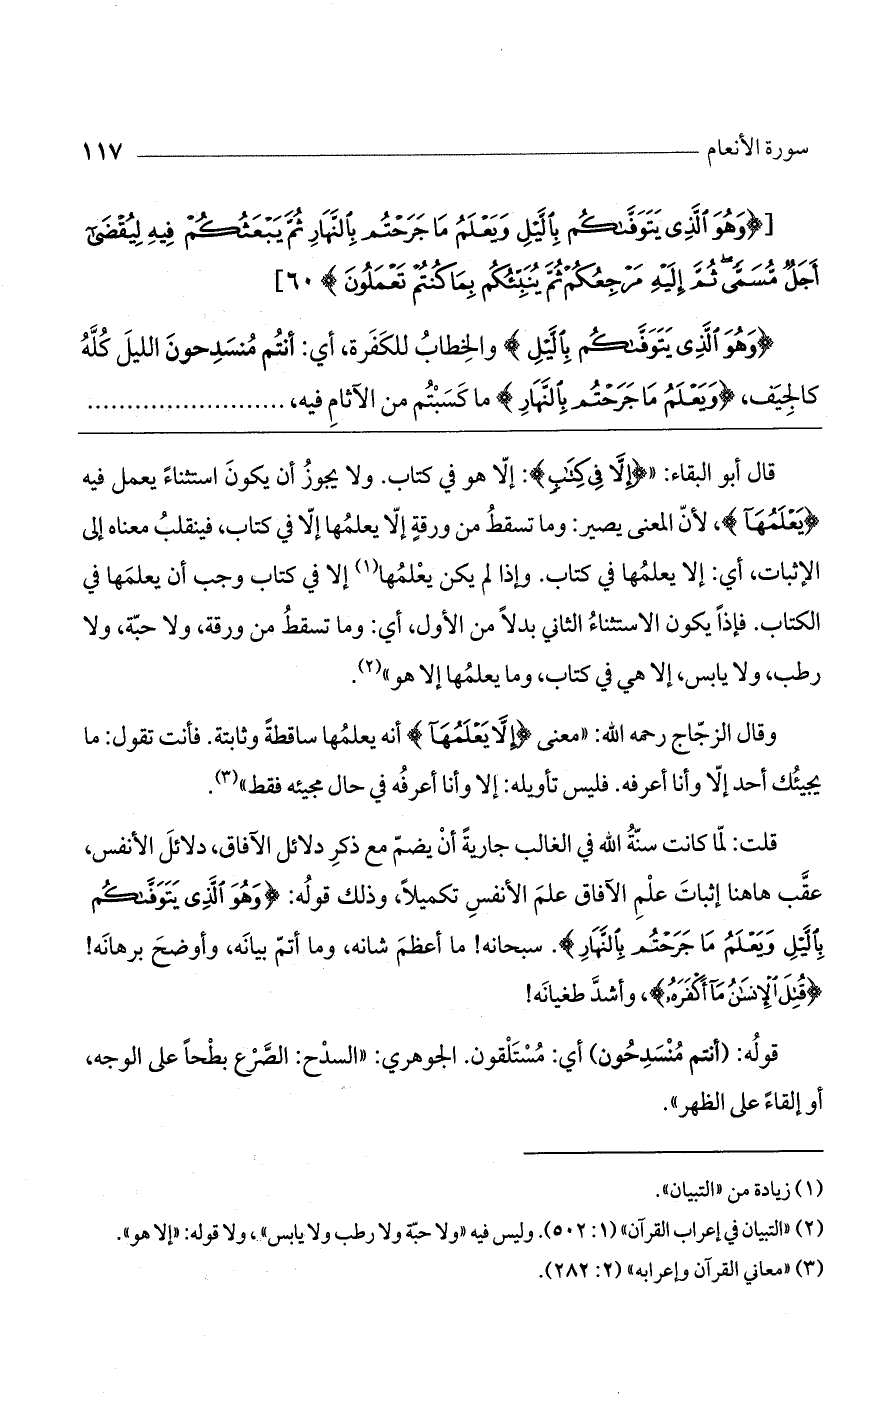 سورة الأنعام ١١٧
[﴿وَهُوَ ٱلَّذِى يَتَوَفَّىٰكُم بِٱلَّيْلِ وَيَعْلَمُ مَا جَرَحْتُم بِٱلنَّهَارِ ثُمَّ يَبْعَثُكُمْ فِيهِ لِيُقْضَىٰٓ
أَجَلٌ مُّسَمًّى ۖ ثُمَّ إِلَيْهِ مَرْجِعُكُمْ ثُمَّ يُنَبِّئُكُم بِمَا كُنتُمْ تَعْمَلُونَ﴾ ٦٠]
﴿وَهُوَ ٱلَّذِى يَتَوَفَّىٰكُم بِٱلَّيْلِ﴾ والخِطابُ للكَفَرة، أي: أنتُم مُنسَدِحونَ الليلَ كُلَّهُ
كالجِيَف، ﴿وَيَعْلَمُ مَا جَرَحْتُم بِٱلنَّهَارِ﴾ ما كَسَبْتُم من الآثامِ فيه، .........................
قال أبو البقاء: «﴿إِلَّا فِى كِتَٰبٍ﴾: إلّا هو في كتاب. ولا يجوزُ أن يكونَ استثناءً يعمل فيه
﴿يَعْلَمُهَآ﴾، لأنّ المعنى يصير: وما تسقطُ من ورقةٍ إلّا يعلمُها إلّا في كتاب، فينقلبُ معناه إلى
الإثبات، أي: إلا يعلمُها في كتاب. وإذا لم يكن يعْلمُها(١) إلا في كتاب وجب أن يعلمَها في
الكتاب. فإذاً يكون الاستثناءُ الثاني بدلاً من الأول، أي: وما تسقطُ من ورقة، ولا حبّة، ولا
رطب، ولا يابس، إلا هي في كتاب، وما يعلمُها إلا هو»(٢).
وقال الزجّاج رحمه الله: «معنى ﴿إِلَّا يَعْلَمُهَآ﴾ أنه يعلمُها ساقطةً وثابتة. فأنت تقول: ما
يجيئُك أحد إلّا وأنا أعرفه. فليس تأويله: إلا وأنا أعرفُه في حال مجيئه فقط»(٣).
قلت: لمّا كانت سنّةُ الله في الغالب جاريةً أنْ يضمّ مع ذكرِ دلائل الآفاق، دلائلَ الأنفس،
عقَّب هاهنا إثباتَ علْمِ الآفاق علمَ الأنفسِ تكميلاً، وذلك قولُه: ﴿وَهُوَ ٱلَّذِى يَتَوَفَّىٰكُم
بِٱلَّيْلِ وَيَعْلَمُ مَا جَرَحْتُم بِٱلنَّهَارِ﴾. سبحانه! ما أعظمَ شانه، وما أتمّ بيانَه، وأوضحَ برهانَه!
﴿قُتِلَ ٱلْإِنسَٰنُ مَآ أَكْفَرَهُۥ﴾، وأشدَّ طغيانَه!
قولُه: (أنتم مُنْسَدِحُون) أي: مُسْتَلْقون. الجوهري: «السدْح: الصَّرْع بطْحاً على الوجه،
أو إلقاءً على الظهر».
(١) زيادة من «التبيان».
(٢) «التبيان في إعراب القرآن» (١: ٥٠٢). وليس فيه «ولا حبّة ولا رطب ولا يابس»، ولا قوله: «إلا هو».
(٣) «معاني القرآن وإعرابه» (٢: ٢٨٢).